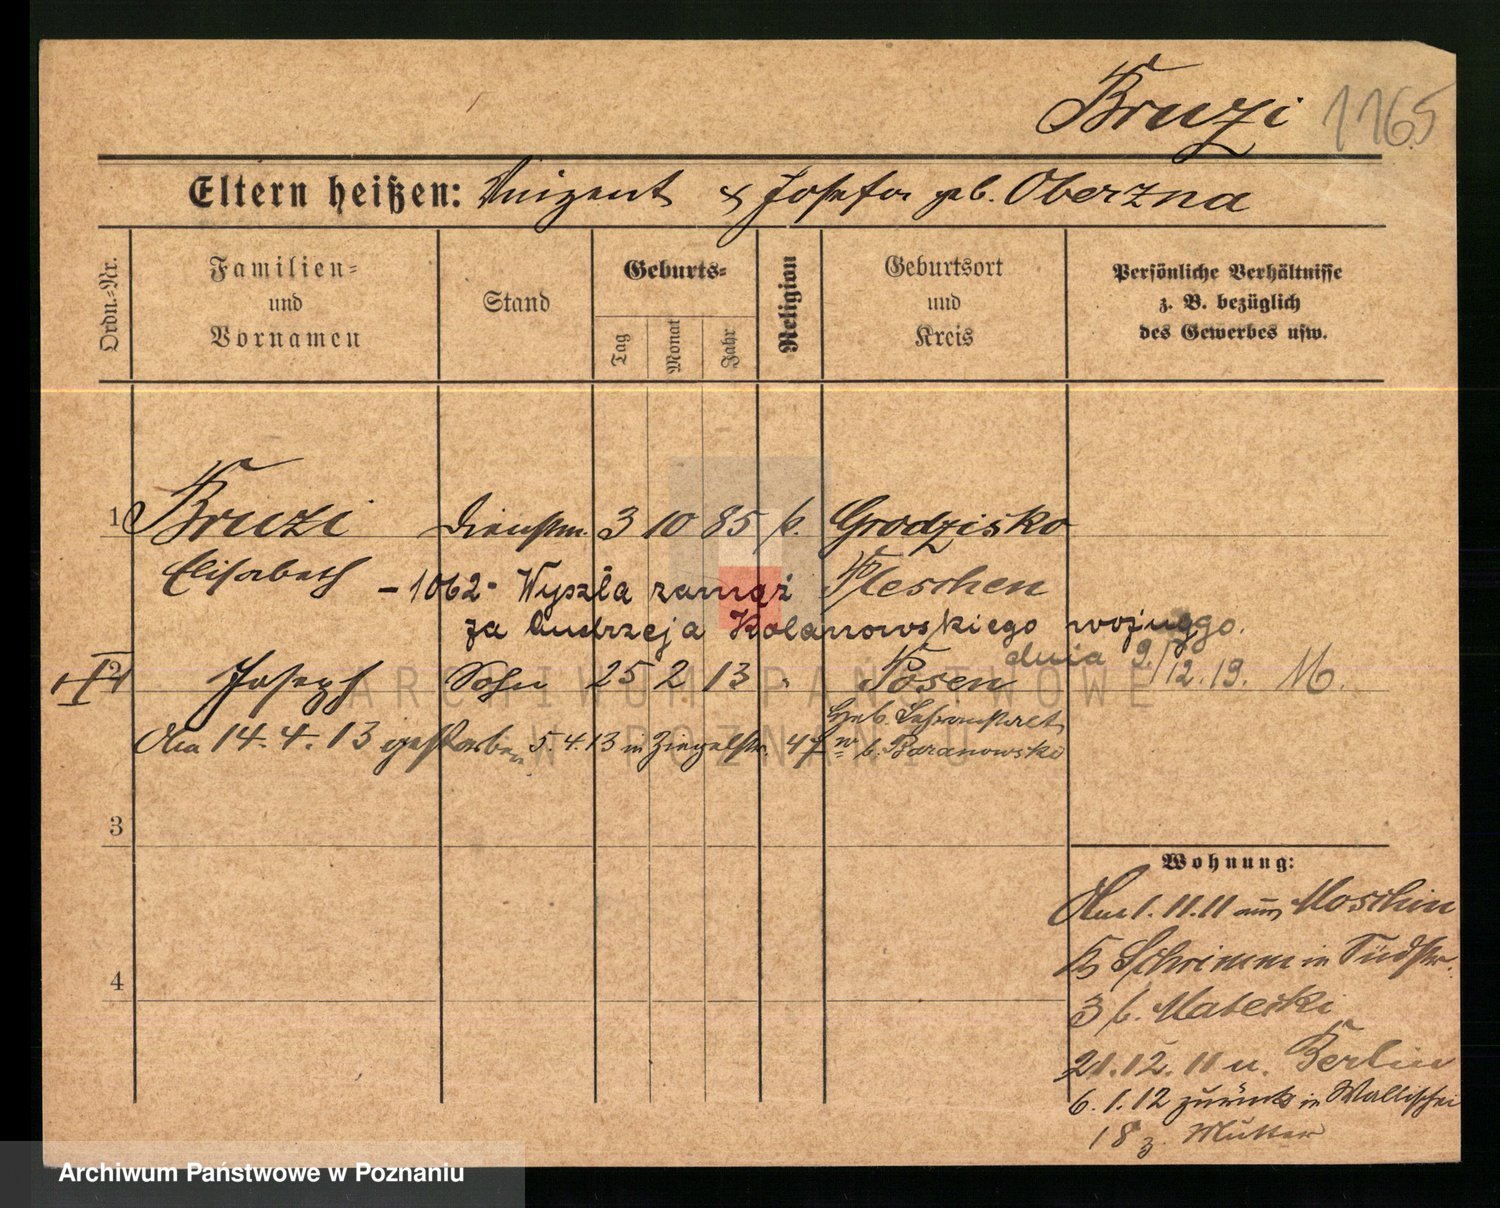 Bruzi 1165
Eltern heißen: Vinzent & Josefa geb. Oberzna
Ordn.-Nr.
Familien-
und
Vornamen
Stand
Geburts-
Tag
Monat
Jahr
Religion
Geburtsort
und
Kreis
Persönliche Verhältnisse
z. B. bezüglich
des Gewerbes usw.
1 Bruzi Dienstm. 3 10 85 k. Grodzisko
Elisabeth Pleschen
-1062- Wyszła zamąż
za Andrzeja Kolanowskiego
dnia 9/12.19. M.
2 Joseph Sohn 25 2 13 " Posen
Geb.
14.4.13 gestorben 5.4.13 in Ziegelstr. 47 b. Baranowski
3
4
Wohnung:
1.11.11 aus Moschin
Schrimm in Südstr.
3 b.
21.12.11 n. Berlin
6.1.12 zurück in Wallischei
18 z. Mutter
ARCHIWUM PAŃSTWOWE
W POZNANIU
Archiwum Państwowe w Poznaniu